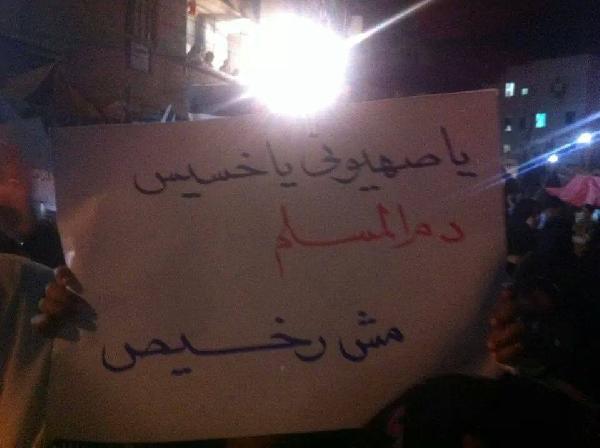 يا صهيوني يا خسيس
دم المسلم
مش رخيص